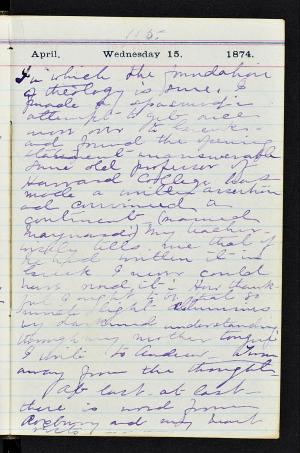 115.
April, Wednesday 15. 1874.
in which the foundation
of theology is sure, I
made a spasmodic
attempt to get once
more
and found the opening
statement unanswerable
Some old professor of
Harvard College has
made a written assertion
and convinced a
continent (named
Maynard) My teacher
tells me that if
he had written it in
Greek I never could
have read it. How thank-
ful I ought to be that so
much light illumines
my darkened understanding
through my mother tongue
I write to Andrew. Worn
away from the thoughts
At last, at last
there is word from
Roxbury and my heart